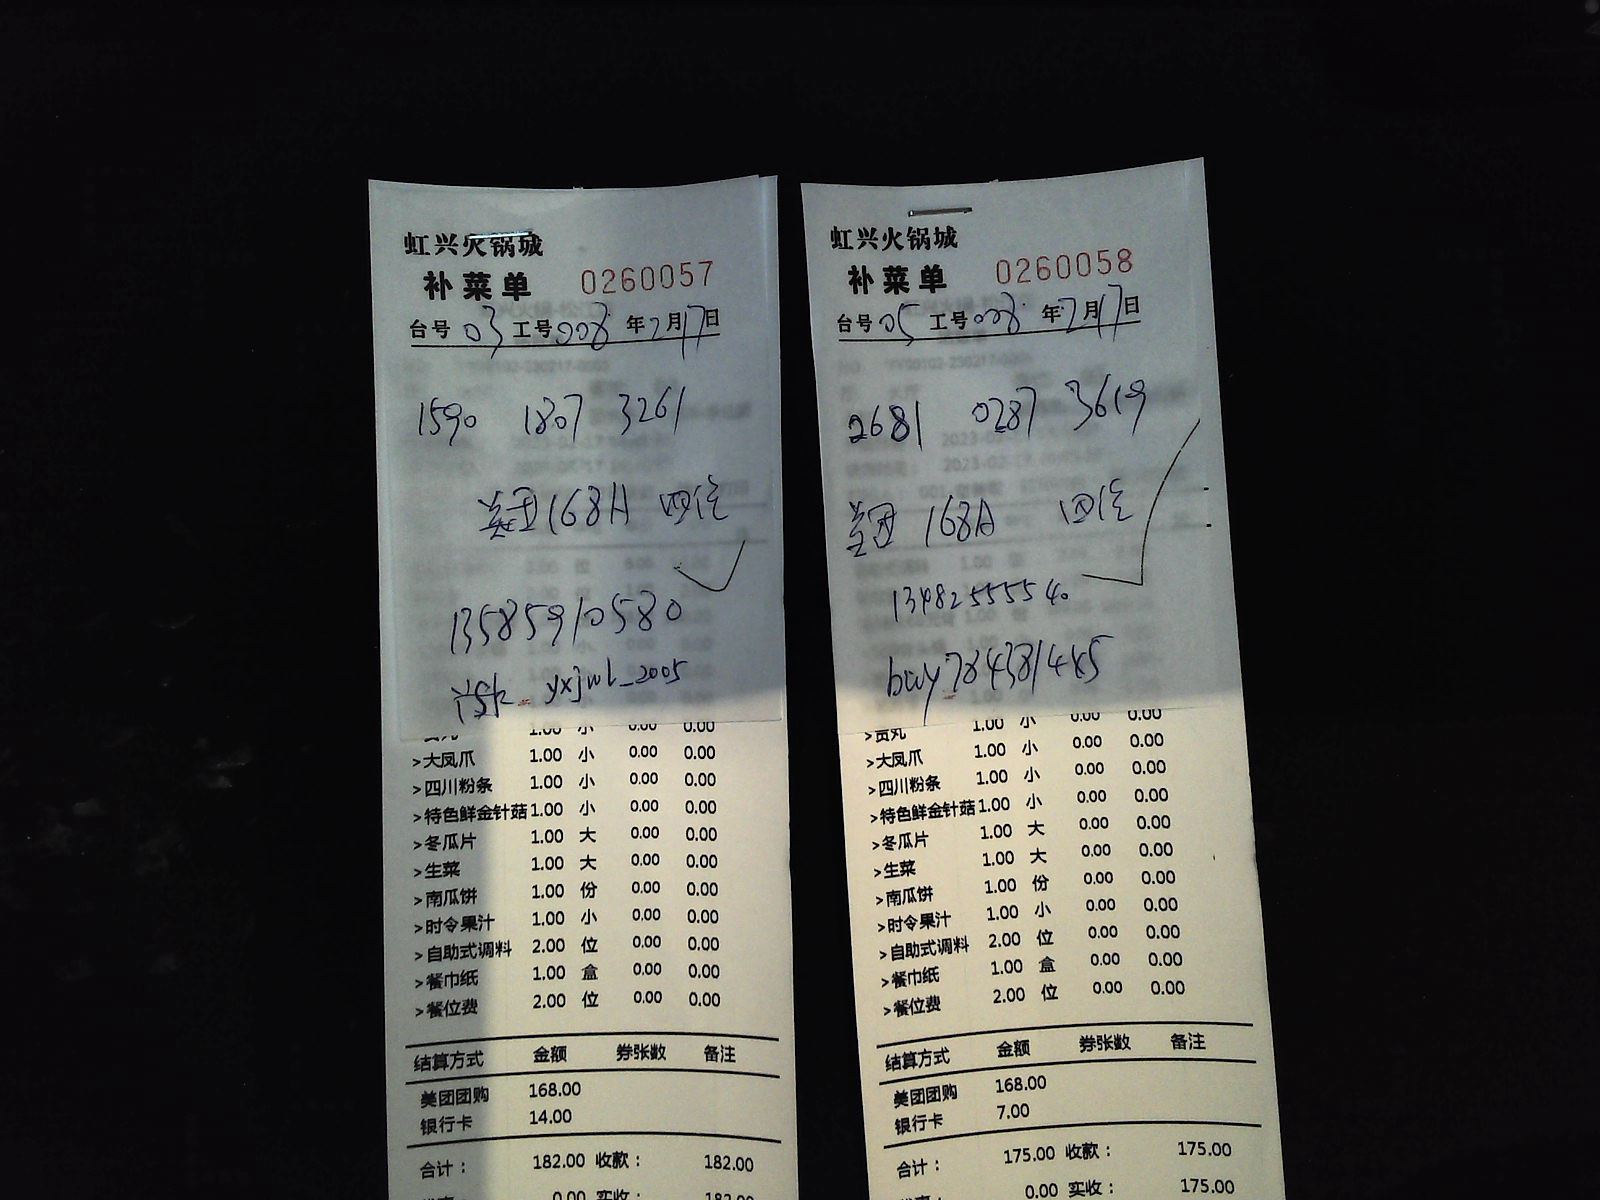 虹兴火锅城
补菜单 0260057
台号 03 工号 008 年 2月17日
1590 1807 3261
美团168A 四位
13585910580
yxjwl_2005
1.00 小 0.00 0.00
>大凤爪 1.00 小 0.00 0.00
>四川粉条 1.00 小 0.00 0.00
>特色鲜金针菇 1.00 小 0.00 0.00
>冬瓜片 1.00 大 0.00 0.00
>生菜 1.00 大 0.00 0.00
>南瓜饼 1.00 份 0.00 0.00
>时令果汁 1.00 小 0.00 0.00
>自助式调料 2.00 位 0.00 0.00
>餐巾纸 1.00 盒 0.00 0.00
>餐位费 2.00 位 0.00 0.00
结算方式 金额 券张数 备注
美团团购 168.00
银行卡 14.00
合计： 182.00 收款： 182.00
0.00 实收： 182.00
虹兴火锅城
补菜单 0260058
台号 05 工号 008 年 2月17日
2681 0287 3619
美团 168A 四位
13482555540
bwy784381445
>贡丸 1.00 小 0.00 0.00
>大凤爪 1.00 小 0.00 0.00
>四川粉条 1.00 小 0.00 0.00
>特色鲜金针菇 1.00 小 0.00 0.00
>冬瓜片 1.00 大 0.00 0.00
>生菜 1.00 大 0.00 0.00
>南瓜饼 1.00 份 0.00 0.00
>时令果汁 1.00 小 0.00 0.00
>自助式调料 2.00 位 0.00 0.00
>餐巾纸 1.00 盒 0.00 0.00
>餐位费 2.00 位 0.00 0.00
结算方式 金额 券张数 备注
美团团购 168.00
银行卡 7.00
合计： 175.00 收款： 175.00
0.00 实收： 175.00